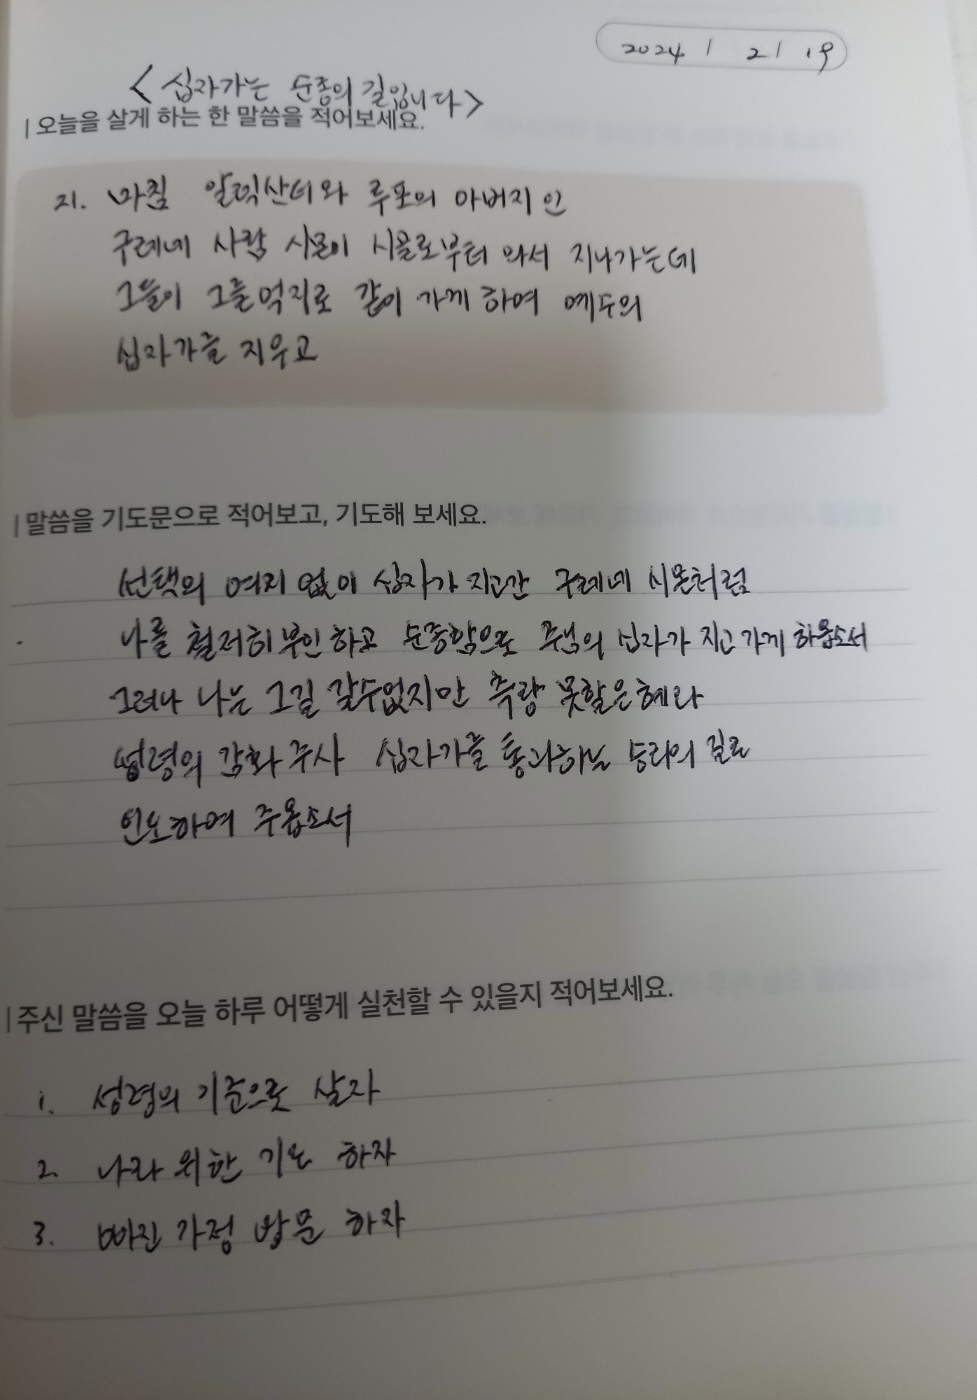 2024 / 2 / 19
<십자가는 순종의 길입니다>
| 오늘을 살게 하는 한 말씀을 적어보세요.
21. 마침 알렉산더와 루포의 아버지인
구레네 사람 시몬이 시골로부터 와서 지나가는데
그들이 그를 억지로 같이 가게 하여 예수의
십자가를 지우고
| 말씀을 기도문으로 적어보고, 기도해 보세요.
선택의 여지 없이 십자가 지고간 구레네 시몬처럼
나를 철저히 부인하고 순종함으로 주님의 십자가 지고 가게 하옵소서
그러나 나는 그길 갈수없지만 측량 못할은혜라
성령의 감화 주사 십자가를 통과하는 승리의 길로
인도하여 주옵소서
| 주신 말씀을 오늘 하루 어떻게 실천할 수 있을지 적어보세요.
1. 성령의 기준으로 살자
2. 나라 위한 기도 하자
3. 빠진 가정 방문 하자